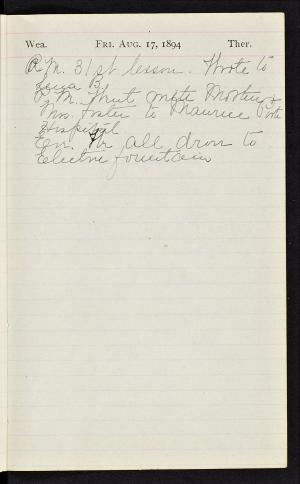 Wea. FRI. AUG. 17, 1894 Ther.
A.M. 31st lesson. Wrote to
Lena B.
P.M. Went with Mother &
Mrs. Foster to Maurice Porter
Hospital
Ev. We all drove to
Electric fountain